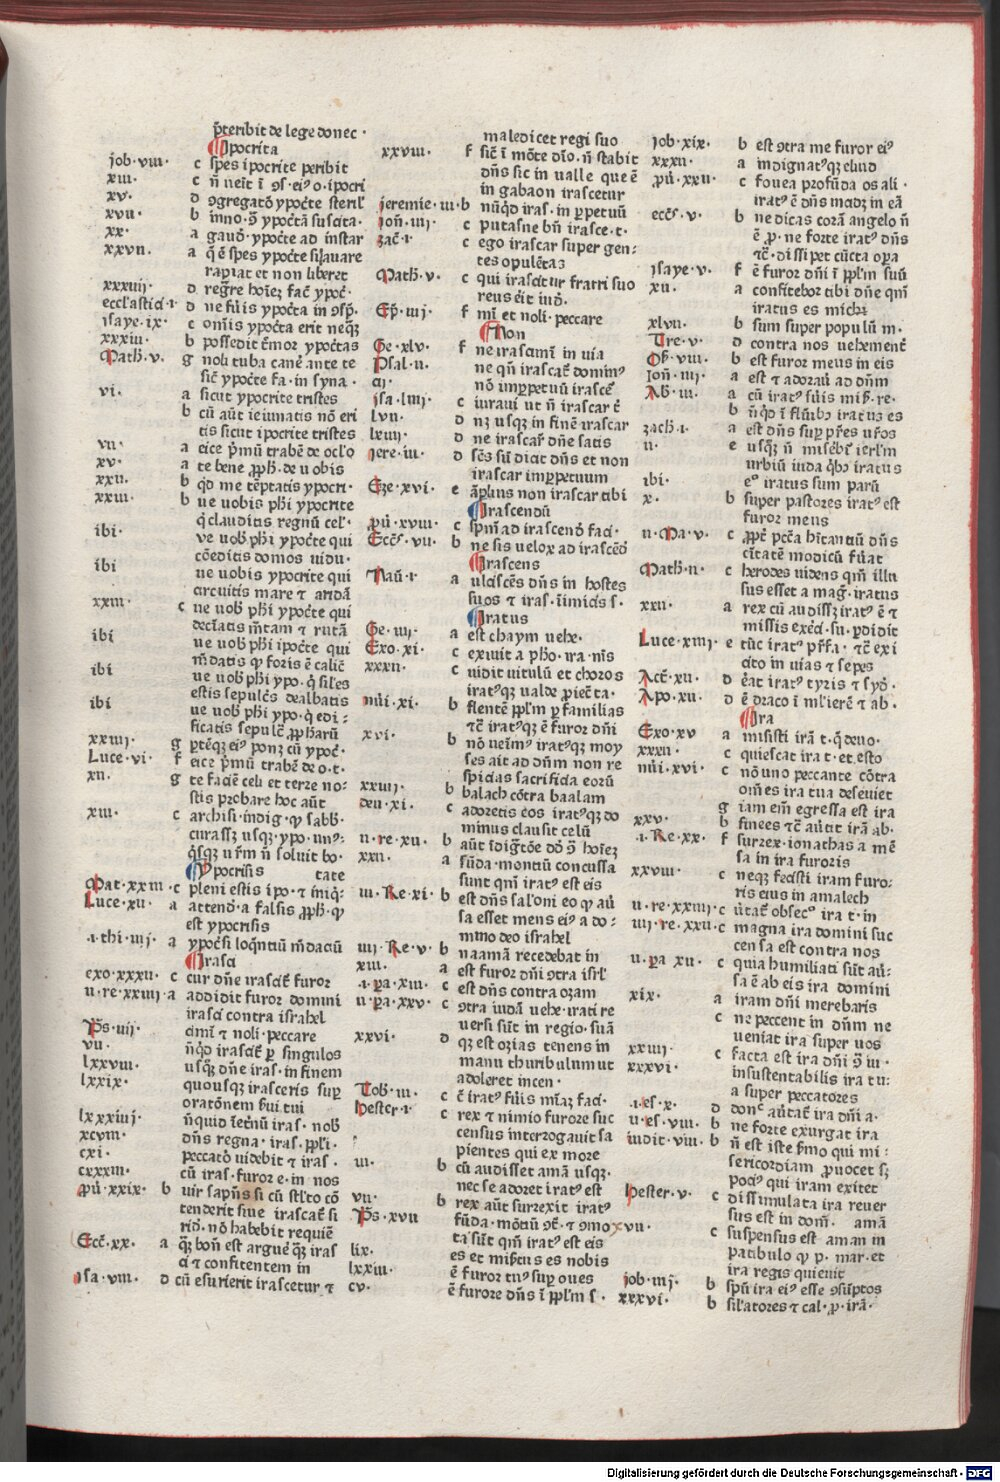 p̃teribit de lege donec ·
¶ Ipocrita
job· viii· c spes ipocrite peribit
xiii· c n̄ ueĩt ĩ ꝯs· eiꝰ o· ipocri
xv· d ꝯgregatõ ypoc̃te steril'
xvii· b inno· ꝯ̃ ypoc̃tã suscita·
xx· a gaud̃· ypoc̃te ad instar
xxvii· a q̃ ẽ spes ypoc̃te si ĩauare
rapiat et non liberet
xxxiiij· d regr̃e hoĩeꝫ fac̃ ypoc̃·
eccl'astici ·i· d ne fũis ypoc̃ta in ꝯsp̃·
jsaye· ix· c om̃is ypoc̃ta erit neqꝫ
xxxiii· b possedit t̃moꝛ ypoc̃tas
Math· v· g noli tuba cane᷑ ante te
sic̃ ypoc̃te fa· in syna·
vi· a sicut ypocrite tristes
b cũ aũt ieiunatis nõ eri
tis sicut ipocrite tristes
vii· a eice p̃mũ trabẽ de oc'lo
xv· a te bene ꝓph̃· de uobis
xxii· b qd̃ me tẽptatis ypocri·
xxiii· b ue uobis ph̃i ypocrite
q̃ clauditis regnũ cel'·
ibi· ve uob̃ ph̃i ypoc̃te qui
cõeditis domos uidu·
ibi ue uobis ypocrite qui
circuitis mare ⁊ aridã
xxiii· c ue uob̃ ph̃i ypoc̃te qui
dec̃iatis m̃tam ⁊ rutã
ibi ue uob̃ ph̃i ipoc̃te qui
m̃datis ꝙ foꝛis ẽ calic̃
ibi ue uob̃ ph̃i ypo· q̃ sil'es
estis sepulc̃s dealbatis
ibi ue uob̃ ph̃i ypo· q̃ edi⸗
ficatis sepulc̃ ꝓph̃arũ
xxiiij· g ꝑtẽqꝫ eiꝰ ponꝫ cũ ypoc̃·
Luce· vi· f eice p̃mũ trabẽ de o· t·
xii· g te faciẽ celi et terre no⸗
stis pꝛobare hoc aũt
xiii· c archisi· indig· ꝙ sabb̃·
curassꝫ usqꝫ· ypo· unꝰ·
q̃sqꝫ ur̃m n̄ soluit bo·
¶ Ypocrisis tate
Mat· xxiii· c pleni estis ipo· ⁊ iniq̃⸗
Luce· xii· a attend̃· a falsis ꝓph̃· ꝙ
est ypocrisis
·i· thi· iiij· a ypoc̃si loq̃ntiũ m̃daciũ
¶ Irasci
exo· xxxii· c cur dñe irascit̃ furoꝛ
ii· re· xxiiij· a addidit furoꝛ domini
irasci contra israhel
Ps· iiij· cimĩ ⁊ noli· peccare
vii· nũqd̃ irascit̃ ꝑ singulos
lxxviii· usq̃ꝫ dñe iras· in finem
lxxix· quousqꝫ irasceris sup̃
oratõnem s̃ui tui
lxxxiiij· ñquid ĩet̃nũ iras· nob̃
xcviii· dñs regna· iras· ppl'i·
cxi· peccatõ uidebit ⁊ iras·
cxxxiii· cũ iras· furoꝛ e· in nos
pũ· xxix· b uir sapñs si cũ stl'to cõ
tenderit siue irascat̃ si
rid̃· nõ habebit requiẽ
Ecc̃· xx· a q̃ꝫ bon̄ est argue᷑ q̃ꝫ iras
ci ⁊ confitentem in
jsa· viii· d cũ esurierit irascetur ⁊
maledicet regi suo
xxviii· f sic̃ ĩ mõte dĩo· n̄ stabit
dñs sic in ualle que ẽ
in gabaon irascetur
jeremie· iii· b nũqd̃ iras· in ꝑpetuũ
joñ· iiij· c putasne bñ irasce· t·
zac̃· i· c ego irascar super gen⸗
tes opulẽtas
Math· v· c qui irascitur fratri suo
reus ẽit iud̃·
Ep̃· iiij· f mĩ et noli· peccare
¶ Non
Ge· xlv· f ne irascamĩ in uia
Psal· ii· ne qñ irascat̃ dominꝰ
ci· nõ inꝑpetuũ irasce᷑
jsa· liiij· c iuraui ut n̄ irascar t̃
lvii· d nꝫ usqꝫ in finẽ irascar
lxiiij· d ne irascar̃ dñe satis
jere· iii· d sc̃s sũ dicit dñs et non
irascar inꝑpetuum
Eze· xvi· e ãplius non irascar tibi
¶ Irascendũ
pũ· xviii· c spm̃ ad irascend̃ faci·
Ecc̃s· vii· b ne sis velox ad irascẽd̃
¶ Irascens
Naũ· i· a ulciscẽs dñs in hostes
suos ⁊ iras· ĩimicis s·
¶ Iratus
Ge· iiij· a est chaym uehe·
Exo· xi· c exiuit a pho· ira· nĩs
xxxii· c uidit uitulũ et choꝛos
iratꝰqꝫ ualde ꝓiec̃ ta·
nũi· xi· b flentẽ ppl'm ꝑ familias
⁊c̃ iratꝰqꝫ ẽ furoꝛ dñi
xvi· b nõ ueĩmꝰ iratꝰqꝫ moy
ses ait ad dñm non re
spicias sacrificia eoꝛũ
xxiiij· b balach cõtra baalam
deu· xi· c adoretis eos iratꝰqꝫ do
minus clausit celũ
ii· re· xii· b aũt ĩdig̃tõe dd̃ ꝯ̃ hoĩeꝫ
xxii· a fũda· montiũ concussa
sunt qm̃ iratꝰ est eis
iii· Re· xi· b est dñs sal'oni eo ꝙ aũ
sa esset mens eiꝰ a do⸗
mino deo israhel
iiij· Re· v· b naamã recedebat in
xiii· a est furoꝛ dñi ꝯtra isrl'
·i· pa· xiii· c est dñs contra ozam
ii· pa· xxv· c ꝯtra iudã uehe· irati re
uersi sũt in regio· suã
xxvi· d qꝫ est ozias tenens in
manu thuribulum ut
adoleret incen·
Tob̃· iii· c c̃ iratꝰ fũis mĩaꝫ faci·
hester· i· c rex ⁊ nimio furoꝛe suc
census interꝛogauit sa
pientes qui ex moꝛe
iii· b cũ audisset amã usqꝫ·
nec se adoꝛet iratꝰ est
vii· b rex aũt surꝛexit iratꝰ
Ps· xvii fũda· mõtiũ ꝯt̃· ⁊ ꝯmo
ta sũt qm̃ iratꝰ est eis
lix· es et misr̃tus es nobis
lxxiii· ẽ furoꝛ tuꝰ sup̃ oues
cv· ẽ furoꝛe dñs ĩ ppl'm s·
job· xix· b est ꝯtra me furoꝛ eiꝰ
xxxii· a indignatꝰqꝫ eliud
pũ· xxii· c fouea pꝛofũda os ali·
iratꝰ ẽ dñs madꝫ in eã
ecc̃s· v· b ne dicas corã angelo n̄
ẽ ꝓ· ne foꝛte iratꝰ dñs
⁊c̃· dissipet cũcta oꝑa
jsaye· v· f ẽ furoꝛ dñi ĩ ppl'm suũ
xii· a confiteboꝛ tibi dñe qm̃
iratus es michi
xlvii· b sum super populũ m·
Tre· v· d contra nos uehement̃
Os̃· viii· b est furoꝛ meus in eis
Joñ· iiij· a est ⁊ adoraũ ad dñm
Ab̃· iii· a cũ iratꝰ fũis mis̃· re·
b ñqd̃ ĩ flũibꝫ iratus es
zach̃· i· a est dñs sup̃ pr̃es ur̃os
ii· e usq̃ꝫ n̄ miseb̃i' ierl'm
urbiũ iuda q̃bꝫ iratus
ibi· eꝰ iratus sum parũ
x· b super pastoꝛes iratꝰ est
furoꝛ meus
ii· Ma· v· c ꝓpt̃ pc̃c̃a hĩtantiũ dñs
cĩtatẽ modicũ fũat
Math̃· ii· c herodes uidens qm̃ illu
sus esset a mag̃· iratus
xxii· a rex cũ audissꝫ iratꝰ ẽ ⁊
missis exc̃ci· su· ꝑdidit
Luce· xiiij· e tũc iratꝰ pr̃fa· ⁊c̃ exi
cito in uias ⁊ sepes
Act̃· xii· d ẽat iratꝰ tyris ⁊ syd̃·
Apo· xii· d ẽ draco ĩ ml'ierẽ ⁊ ab·
¶ Ira
Exo· xv a misisti irã t· q̃ deuo·
xxxii· c quiescat ira t· et esto
nũi· xvi· c nõ uno peccante cõtra
om̃es ira tua deseuiet
g iam em̃ egressa est ira
xxv· b finees ⁊c̃ aũtit irã ab·
·i· Re· xx· f surꝛex· ionathas a mẽ
sa in ira furoꝛis
xxviii· c neqꝫ fecisti iram furo⸗
ris eius in amalech
ii· re· xxiiij· c ũtat̃ obsecꝰ ira t· in
iiij· re· xxii· c magna ira domini suc
cen sa est contra nos
ii· pa xii· c quia humiliati sũt aũ⸗
sa ẽ ab eis ira domini
xix· a iram dñi merebaris
c ne peccent in dñm ne
ueniat ira super uos
xxiiij· c facta est ira dñi ꝯ̃ iu·
xxxvi· insustentabilis ira tu⸗
a super peccatoꝛes
·i· es· x· d donc̃ aũtat̃ ira dñi a·
ii· es· viii· b ne foꝛte exurgat ira
iudit· viii· b n̄ est iste s̃mo qui mi⸗
sericoꝛdiam ꝓuocet sꝫ
pociꝰ qui iram exitet
hester· v· c dissimulata ira reuer
sus est in dom̃· amã
vii· c suspensus est aman in
patibulo ꝙ p· mar· et
ira regis quieuit
job· iiij· b spũ ira eiꝰ esse ꝯsũptos
xxxvi· b sil'atoꝛes ⁊ cal· ꝓ· irã·
Digitalisierung gefördert durch die Deutsche Forschungsgemeinschaft · DFG